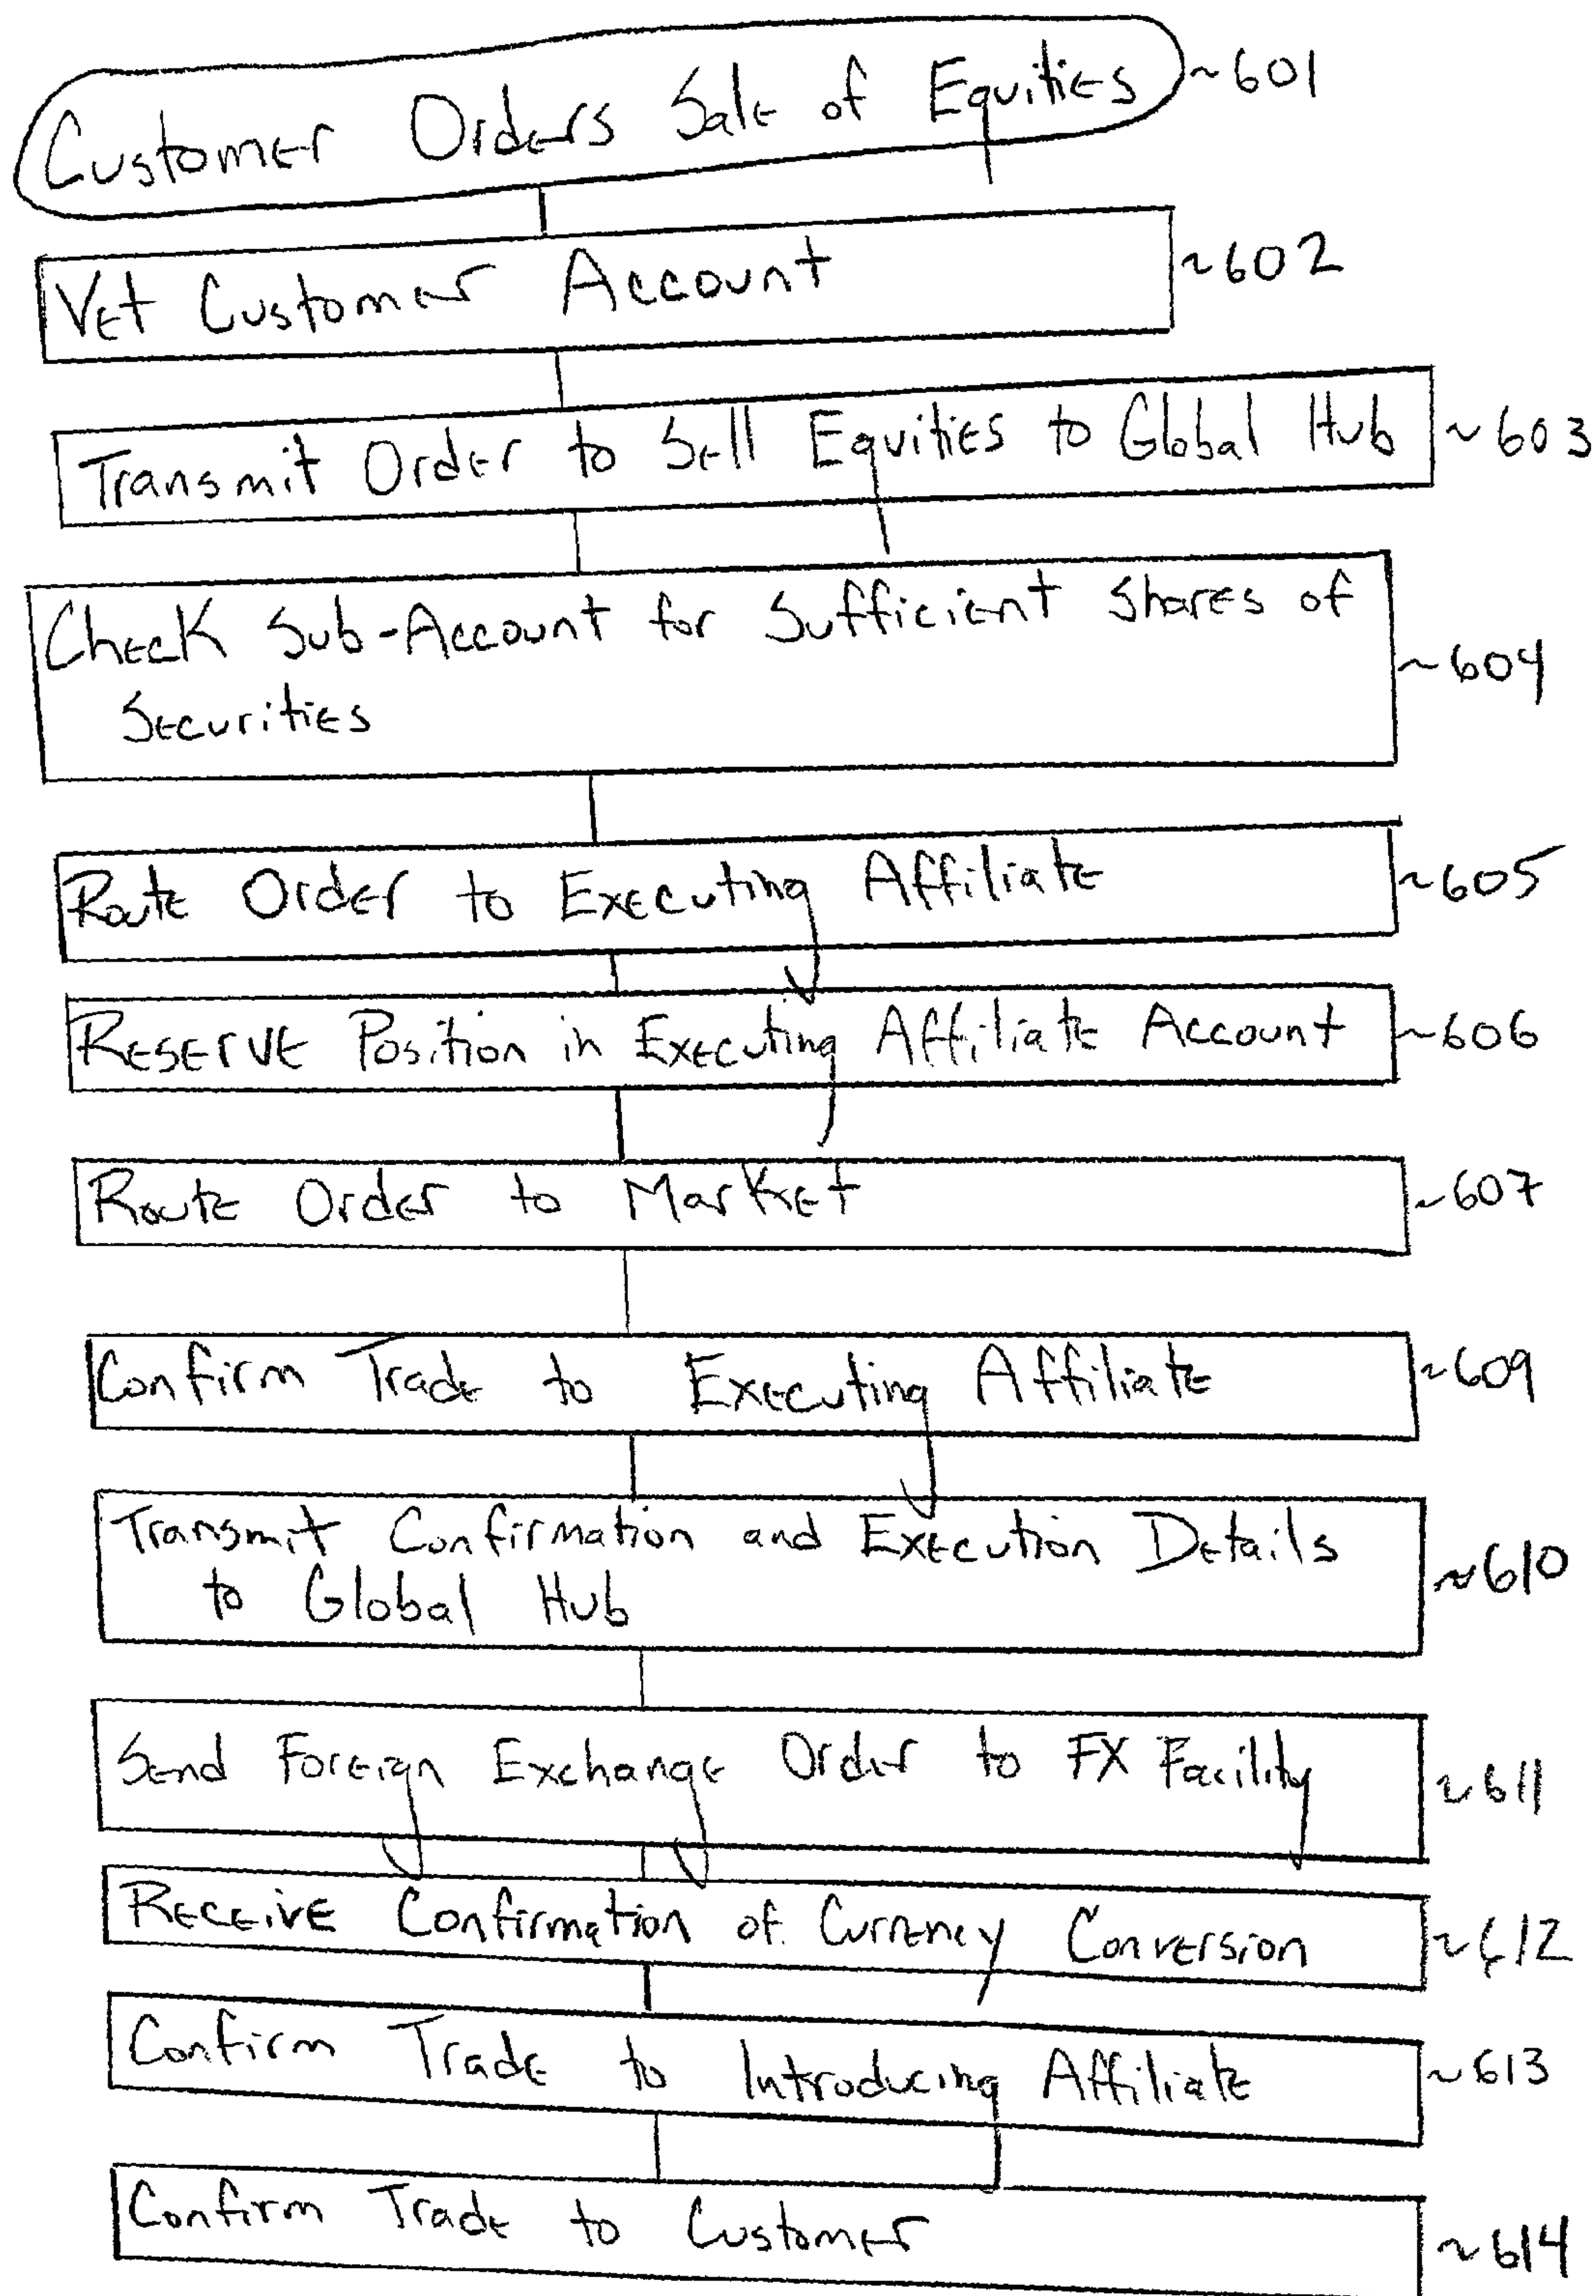 Customer Orders Sale of Equities ~601
Vet Customer Account ~602
Transmit Order to Sell Equities to Global Hub ~603
Check Sub-Account for Sufficient Shares of
Securities ~604
Route Order to Executing Affiliate ~605
Reserve Position in Executing Affiliate Account ~606
Route Order to Market ~607
Confirm Trade to Executing Affiliate ~609
Transmit Confirmation and Execution Details
to Global Hub ~610
Send Foreign Exchange Order to FX Facility ~611
Receive Confirmation of Currency Conversion ~612
Confirm Trade to Introducing Affiliate ~613
Confirm Trade to Customer ~614